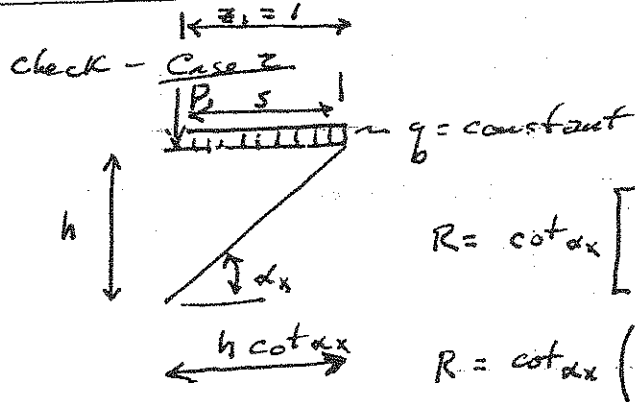 z₁ = 1
check - Case 2
P₁ s
q_b = constant
h
R = cot αx [
αx
h cot αx
R = cot αx (